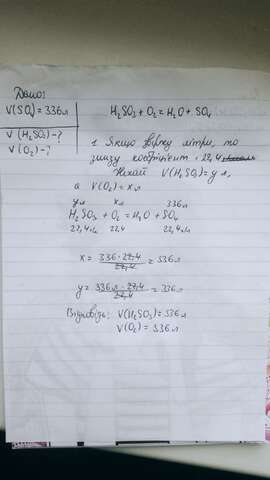 Дано:
V(SO₄)=336л
V(H₂SO₃)-?
V(O₂)-?
H₂SO₃ + O₂ = H₂O + SO₄
1. Якщо зверху літри, то
знизу коефіцієнт · 22,4
Нехай V(H₂SO₃)=y л,
а V(O₂)=x л
y л x л 336л
H₂SO₃ + O₂ = H₂O + SO₄
22,4·1л 22,4 22,4·1л
x = 336·22,4 / 22,4 = 336л
y = 336л·22,4 / 22,4 = 336л
Відповідь: V(H₂SO₃)=336л
V(O₂)=336л